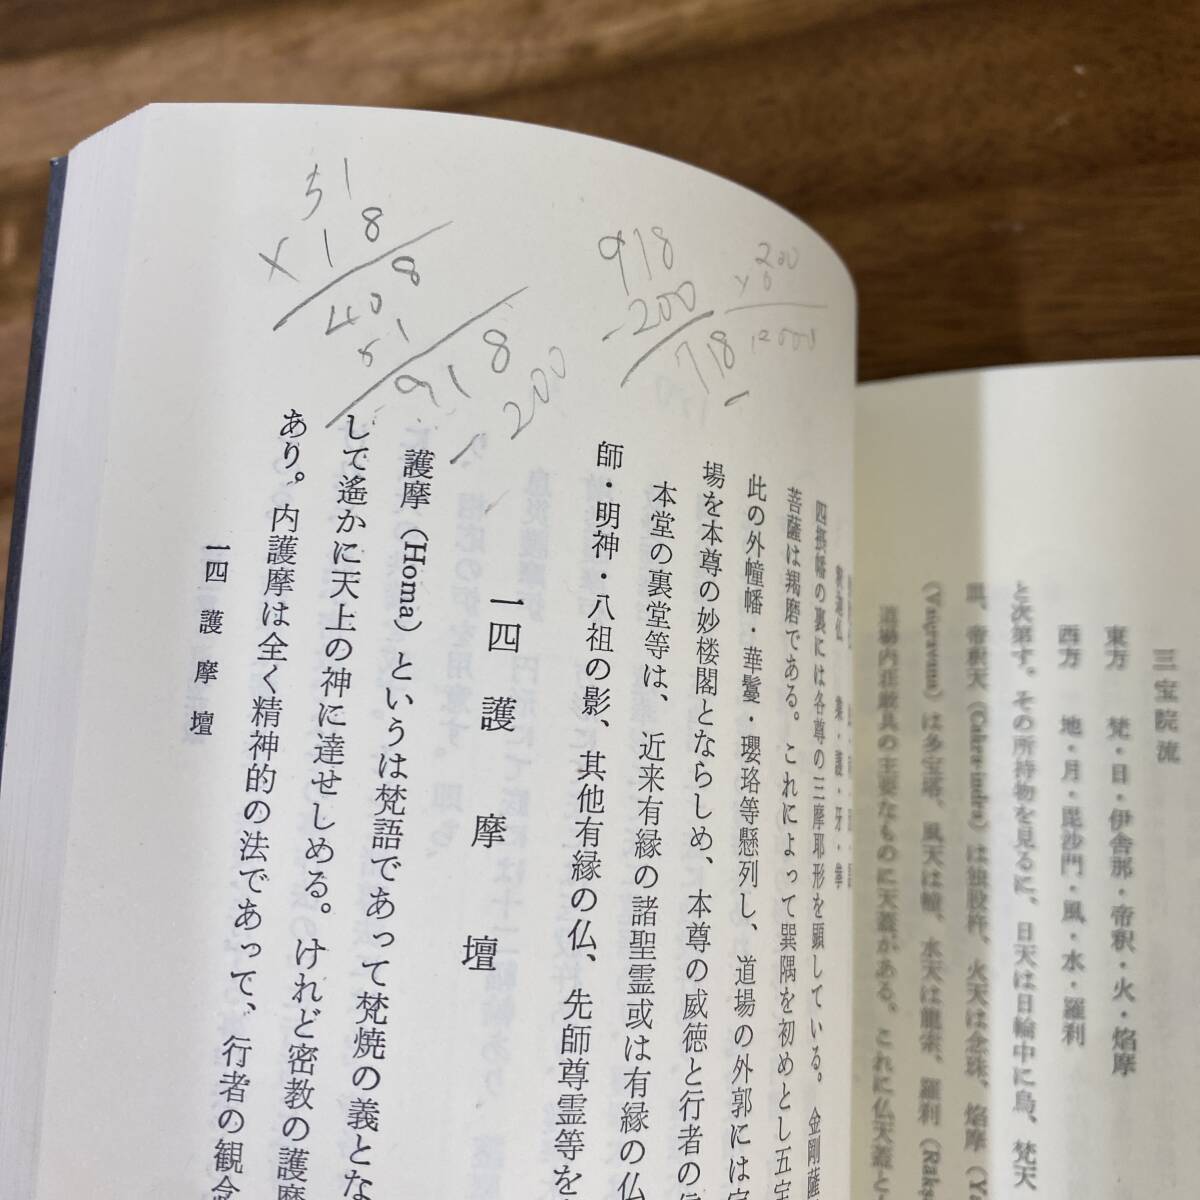 51
×18
408
51
918
-200
918
-200
718
200
12000
三宝院流
東方　梵・日・伊舎那・帝釈・火・焔摩
西方　地・月・毘沙門・風・水・羅利
と次第す。その所持物を見るに、日天は日輪中に烏、梵天
皿、帝釈天
は独股杵、火天は念珠、焔摩
は多宝塔、風天は幢、水天は龍索、羅利
道場内荘厳具の主要なものに天蓋がある。これに仏天蓋と
四摂幡の裏には各尊の三摩耶形を顕している。金剛薩
菩薩は羯磨である。これによって巽隅を初めとし五宝
此の外幢幡・華鬘・瓔珞等懸列し、道場の外郭には
場を本尊の妙楼閣とならしめ、本尊の威徳と行者の
本堂の裏堂等は、近来有縁の諸聖霊或は有縁の仏
師・明神・八祖の影、其他有縁の仏、先師尊霊等を
一四　護摩壇
護摩（Homa）というは梵語であって梵焼の義とな
して遙かに天上の神に達せしめる。けれど密教の護摩
あり。内護摩は全く精神的の法であって、行者の観念
一四　護摩壇